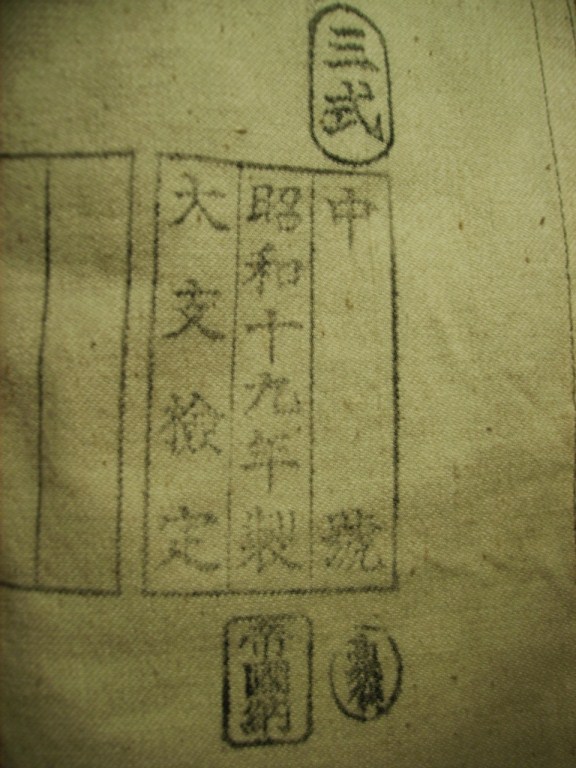 三式
中號
昭和十九年製
大支檢定
帝國納